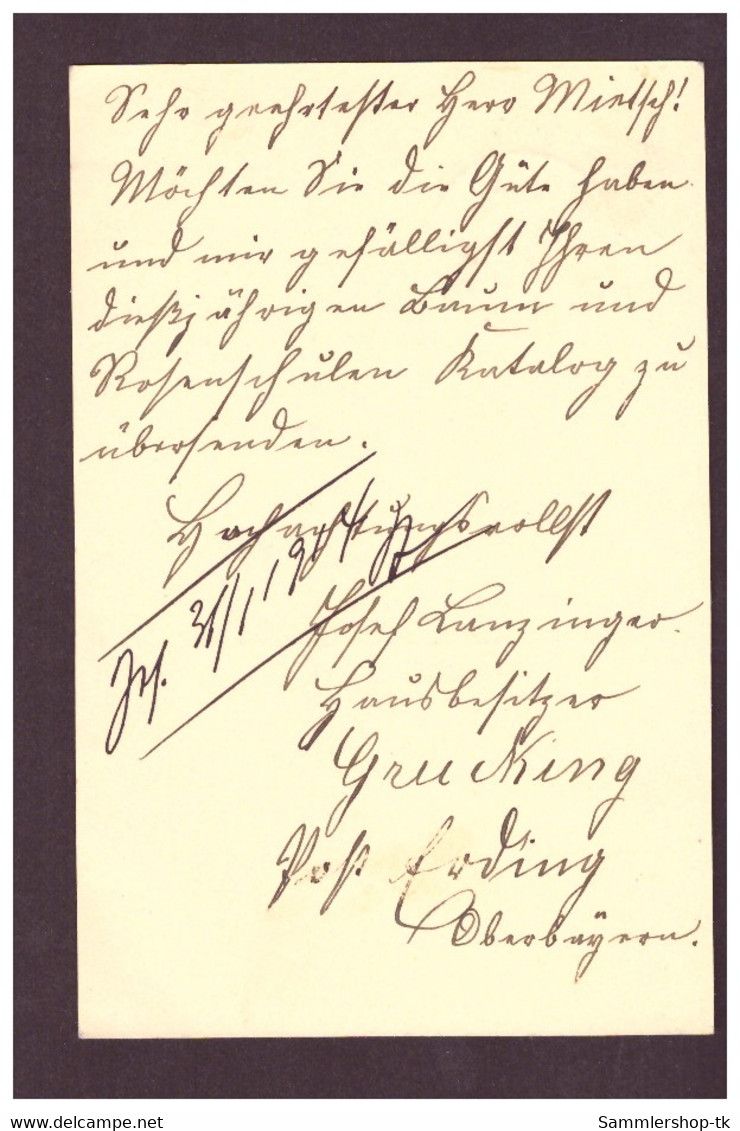 Sehr geehrtester Herr Mietsch!
Möchten Sie die Güte haben
und mir gefälligst Ihren
dießjährigen Baum und
Rosenschulen Katalog zu
übersenden.
Hochachtungsvollst
31/1 1914
Josef Lanzinger.
Hausbesitzer
Grucking
Post Erding
Oberbayern.
delcampe.net
Sammlershop-tk